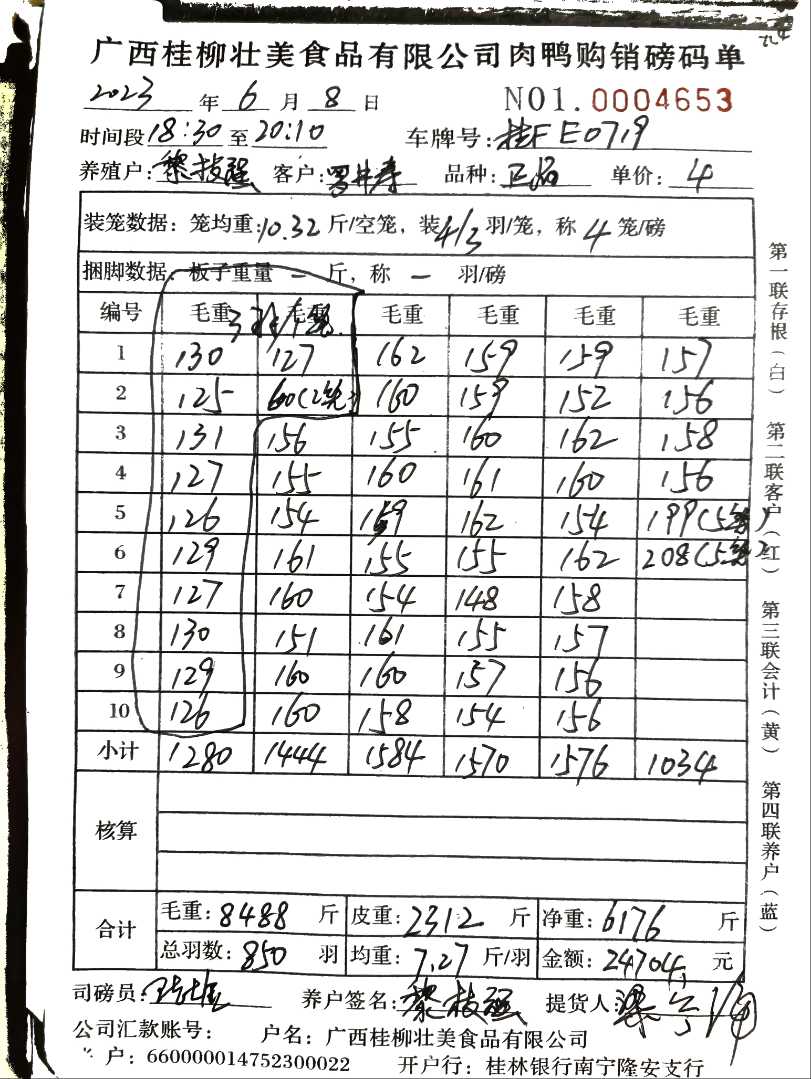 广西桂柳壮美食品有限公司肉鸭购销磅码单
2023 年 6 月 8 日 NO1.0004653
时间段18:30至20:10 车牌号:桂FE0719
养殖户:黎技强 客户: 品种:正品 单价:4
装笼数据:笼均重:10.32斤/空笼,装4/3羽/笼,称4笼/磅
捆脚数据:板子重量 - 斤,称 - 羽/磅
编号 毛重 毛重 毛重 毛重 毛重 毛重
1 130 127 162 159 159 157
2 125 60(2笼) 160 159 152 156
3 131 156 155 160 162 158
4 127 155 160 161 160 156
5 126 154 159 162 154 199(5笼)
6 129 161 155 155 162 208(5笼)
7 127 160 154 148 158
8 130 151 161 155 157
9 129 160 160 157 156
10 126 160 158 154 156
小计 1280 1444 1584 1570 1576 1034
核算
合计 毛重:8488斤 皮重:2312斤 净重:6176斤
总羽数:850羽 均重:7.27斤/羽 金额:24704元
司磅员: 养户签名:黎技强 提货人:
公司汇款账号: 户名:广西桂柳壮美食品有限公司
户:660000014752300022 开户行:桂林银行南宁隆安支行
第一联存根(白) 第二联客户(红) 第三联会计(黄) 第四联养户(蓝)